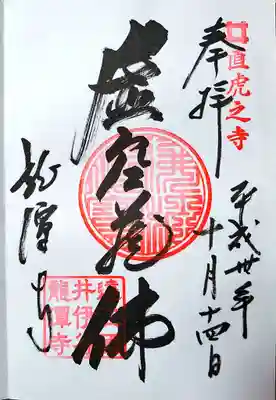 直虎之寺
奉拝
平成卅年
十月十四日
虚空蔵佛
龍潭寺
井伊谷
龍潭寺